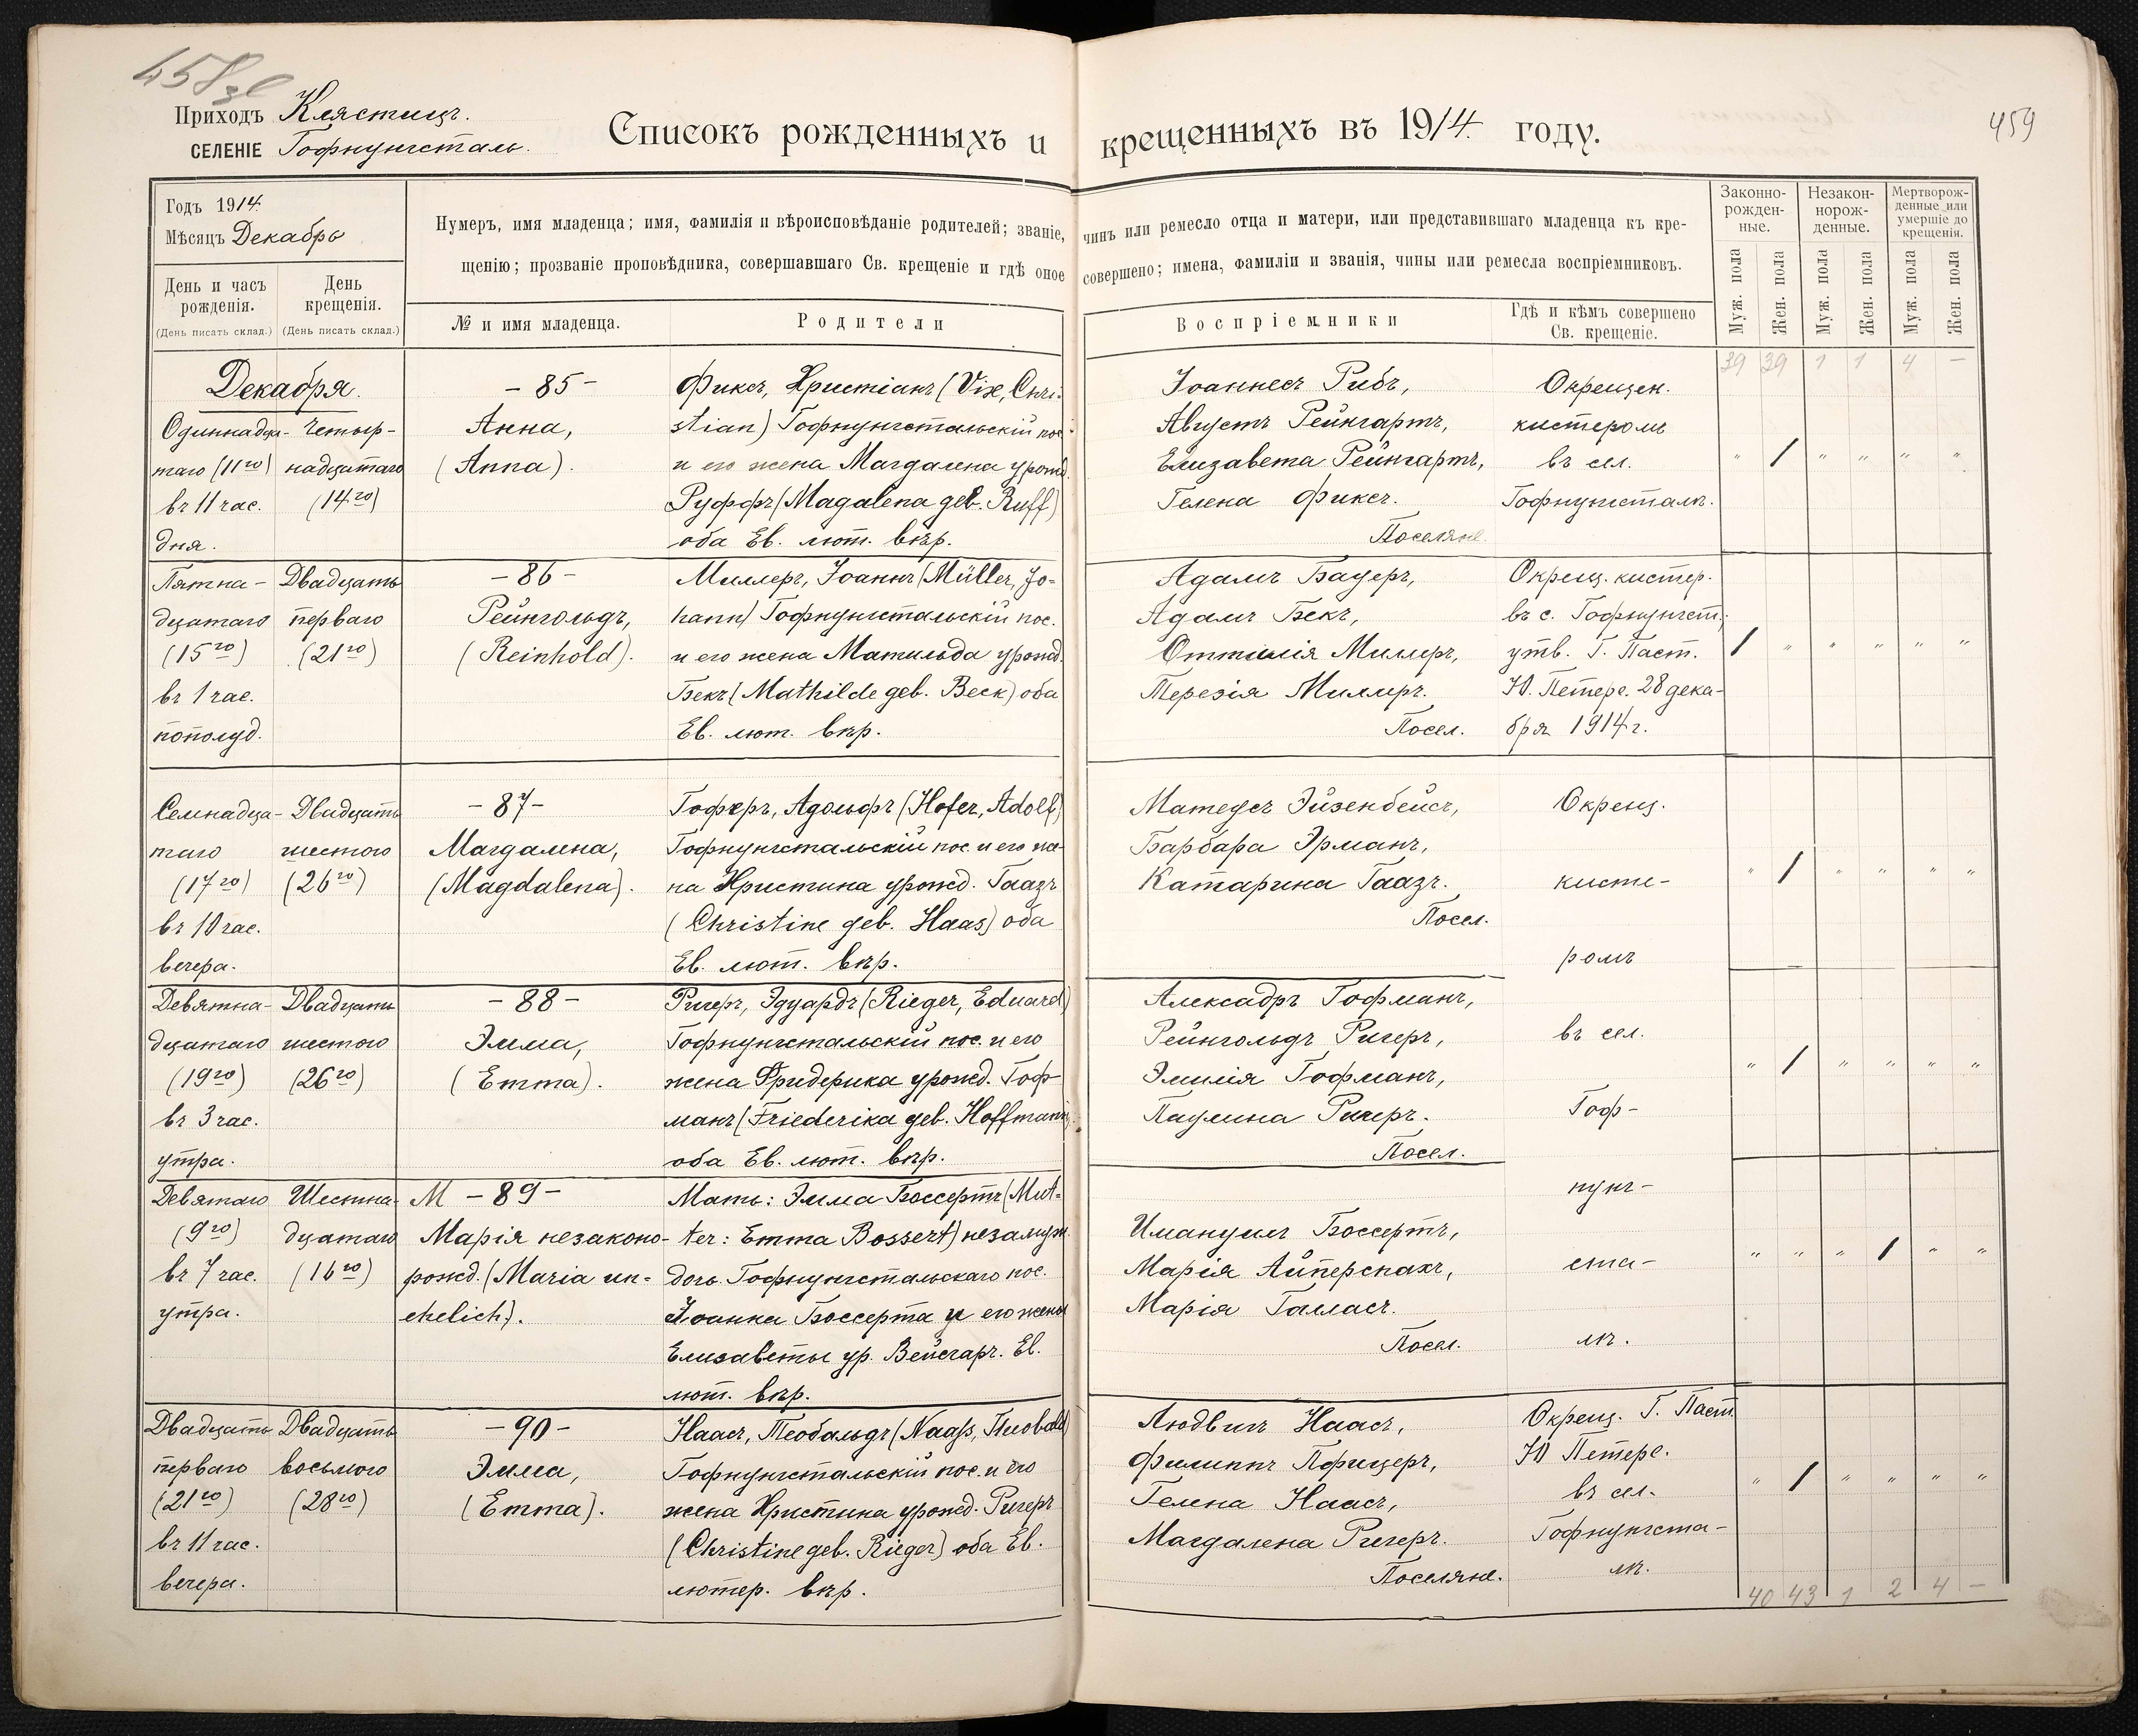 458
459
Приходъ Клястицъ.
СЕЛЕНІЕ Гофнунгсталь.
Списокъ рожденныхъ и крещенныхъ въ 1914 году.
Годъ 1914
Мѣсяцъ Декабрь
День и часъ рожденія.
(День писать склад.)
День крещенія.
(День писать склад.)
Нумеръ, имя младенца; имя, фамилія и вѣроисповѣданіе родителей; званіе, чинъ или ремесло отца и матери, или представившаго младенца къ кре-
щенію; прозваніе проповѣдника, совершавшаго Св. крещеніе и гдѣ оное совершено; имена, фамиліи и званія, чины или ремесла воспріемниковъ.
№ и имя младенца.
Родители
Воспріемники
Гдѣ и кѣмъ совершено
Св. крещеніе.
Законно-
рожден-
ные.
Незакон-
норож-
денные.
Мертворож-
денные или
умершіе до
крещенія.
Муж. пола
Жен. пола
Муж. пола
Жен. пола
Муж. пола
Жен. пола
39 39 1 1 4 —
Декабря.
Одиннадца-
таго (11го)
въ 11 час.
дня.
Четыр-
надцатаго
(14го)
- 85 -
Анна,
(Anna).
Фиксъ, Христіанъ (Vix, Chri-
stian) Гофнунгстальскій пос.
и его жена Магдалена урожд.
Руффъ (Magalena geb. Ruff)
оба Ев. лют. вѣр.
Іоаннесъ Рибъ,
Августъ Рейнгартъ,
Елизавета Рейнгартъ,
Гелена Фиксъ.
Поселяне.
Окрещен.
кистеромъ
въ сел.
Гофнунгсталѣ.
" / " " " "
Пятна-
дцатаго
(15го)
въ 1 час.
пополуд.
Двадцать
перваго
(21го)
- 86 -
Рейнгольдъ,
(Reinhold).
Миллеръ, Іоаннъ (Müller, Jo-
hann) Гофнунгстальскій пос.
и его жена Матильда урожд.
Бекъ (Mathilde geb. Beck) оба
Ев. лют. вѣр.
Адамъ Бауеръ,
Адамъ Бекъ,
Оттилія Миллеръ,
Терезія Миллеръ.
Посел.
Окрещ. кистер.
въ с. Гофнунгст.;
утв. Г. Паст.
Ю. Петерс. 28 дека-
бря 1914 г.
/ " " " " "
Семнадца-
таго
(17го)
въ 10 час.
вечера.
Двадцать
шестого
(26го)
- 87 -
Магдалена,
(Magdalena).
Гоферъ, Адольфъ (Hofer, Adolf)
Гофнунгстальскій пос. и его же-
на Христина урожд. Гаазъ
(Christine geb. Haas) оба
Ев. лют. вѣр.
Матеусъ Эйзенбейсъ,
Барбара Эрманъ,
Катарина Гаазъ.
Посел.
Окрещ.
кисте-
ромъ
" / " " " "
Девятна-
дцатаго
(19го)
въ 3 час.
утра.
Двадцать
шестого
(26го)
- 88 -
Эмма,
(Emma).
Ригеръ, Эдуардъ (Rieger, Eduard)
Гофнунгстальскій пос. и его
жена Фридерика урожд. Гоф-
манъ (Friederika geb. Hoffmann)
оба Ев. лют. вѣр.
Алексадръ Гофманъ,
Рейнгольдъ Ригеръ,
Эмилія Гофманъ,
Паулина Ригеръ.
Посел.
въ сел.
Гоф-
" / " " " "
Девятаго
(9го)
въ 7 час.
утра.
Шестна-
дцатаго
(16го)
М - 89 -
Марія незаконо-
рожд. (Maria un-
ehelich).
Мать: Эмма Боссертъ (Mut-
ter: Emma Bossert) незамуж.
дочь Гофнунгстальскаго пос.
Іоанна Боссерта и его жены
Елизаветы ур. Вейсгаръ. Ев.
лют. вѣр.
Имануилъ Боссертъ,
Марія Айперспахъ,
Марія Галласъ.
Посел.
нунг-
ста-
лѣ.
" " " / " "
Двадцать
перваго
(21го)
въ 11 час.
вечера.
Двадцать
восьмого
(28го)
- 90 -
Эмма,
(Emma).
Наасъ, Теобальдъ (Naaß, Theobald)
Гофнунгстальскій пос. и его
жена Христина урожд. Ригеръ
(Christine geb. Rieger) оба Ев.
лютер. вѣр.
Людвигъ Наасъ,
Филиппъ Пфицеръ,
Гелена Наасъ,
Магдалена Ригеръ.
Поселяне.
Окрещ. Г. Паст.
Ю Петерс.
въ сел.
Гофнунгста-
лѣ.
" / " " " "
40 43 1 2 4 —